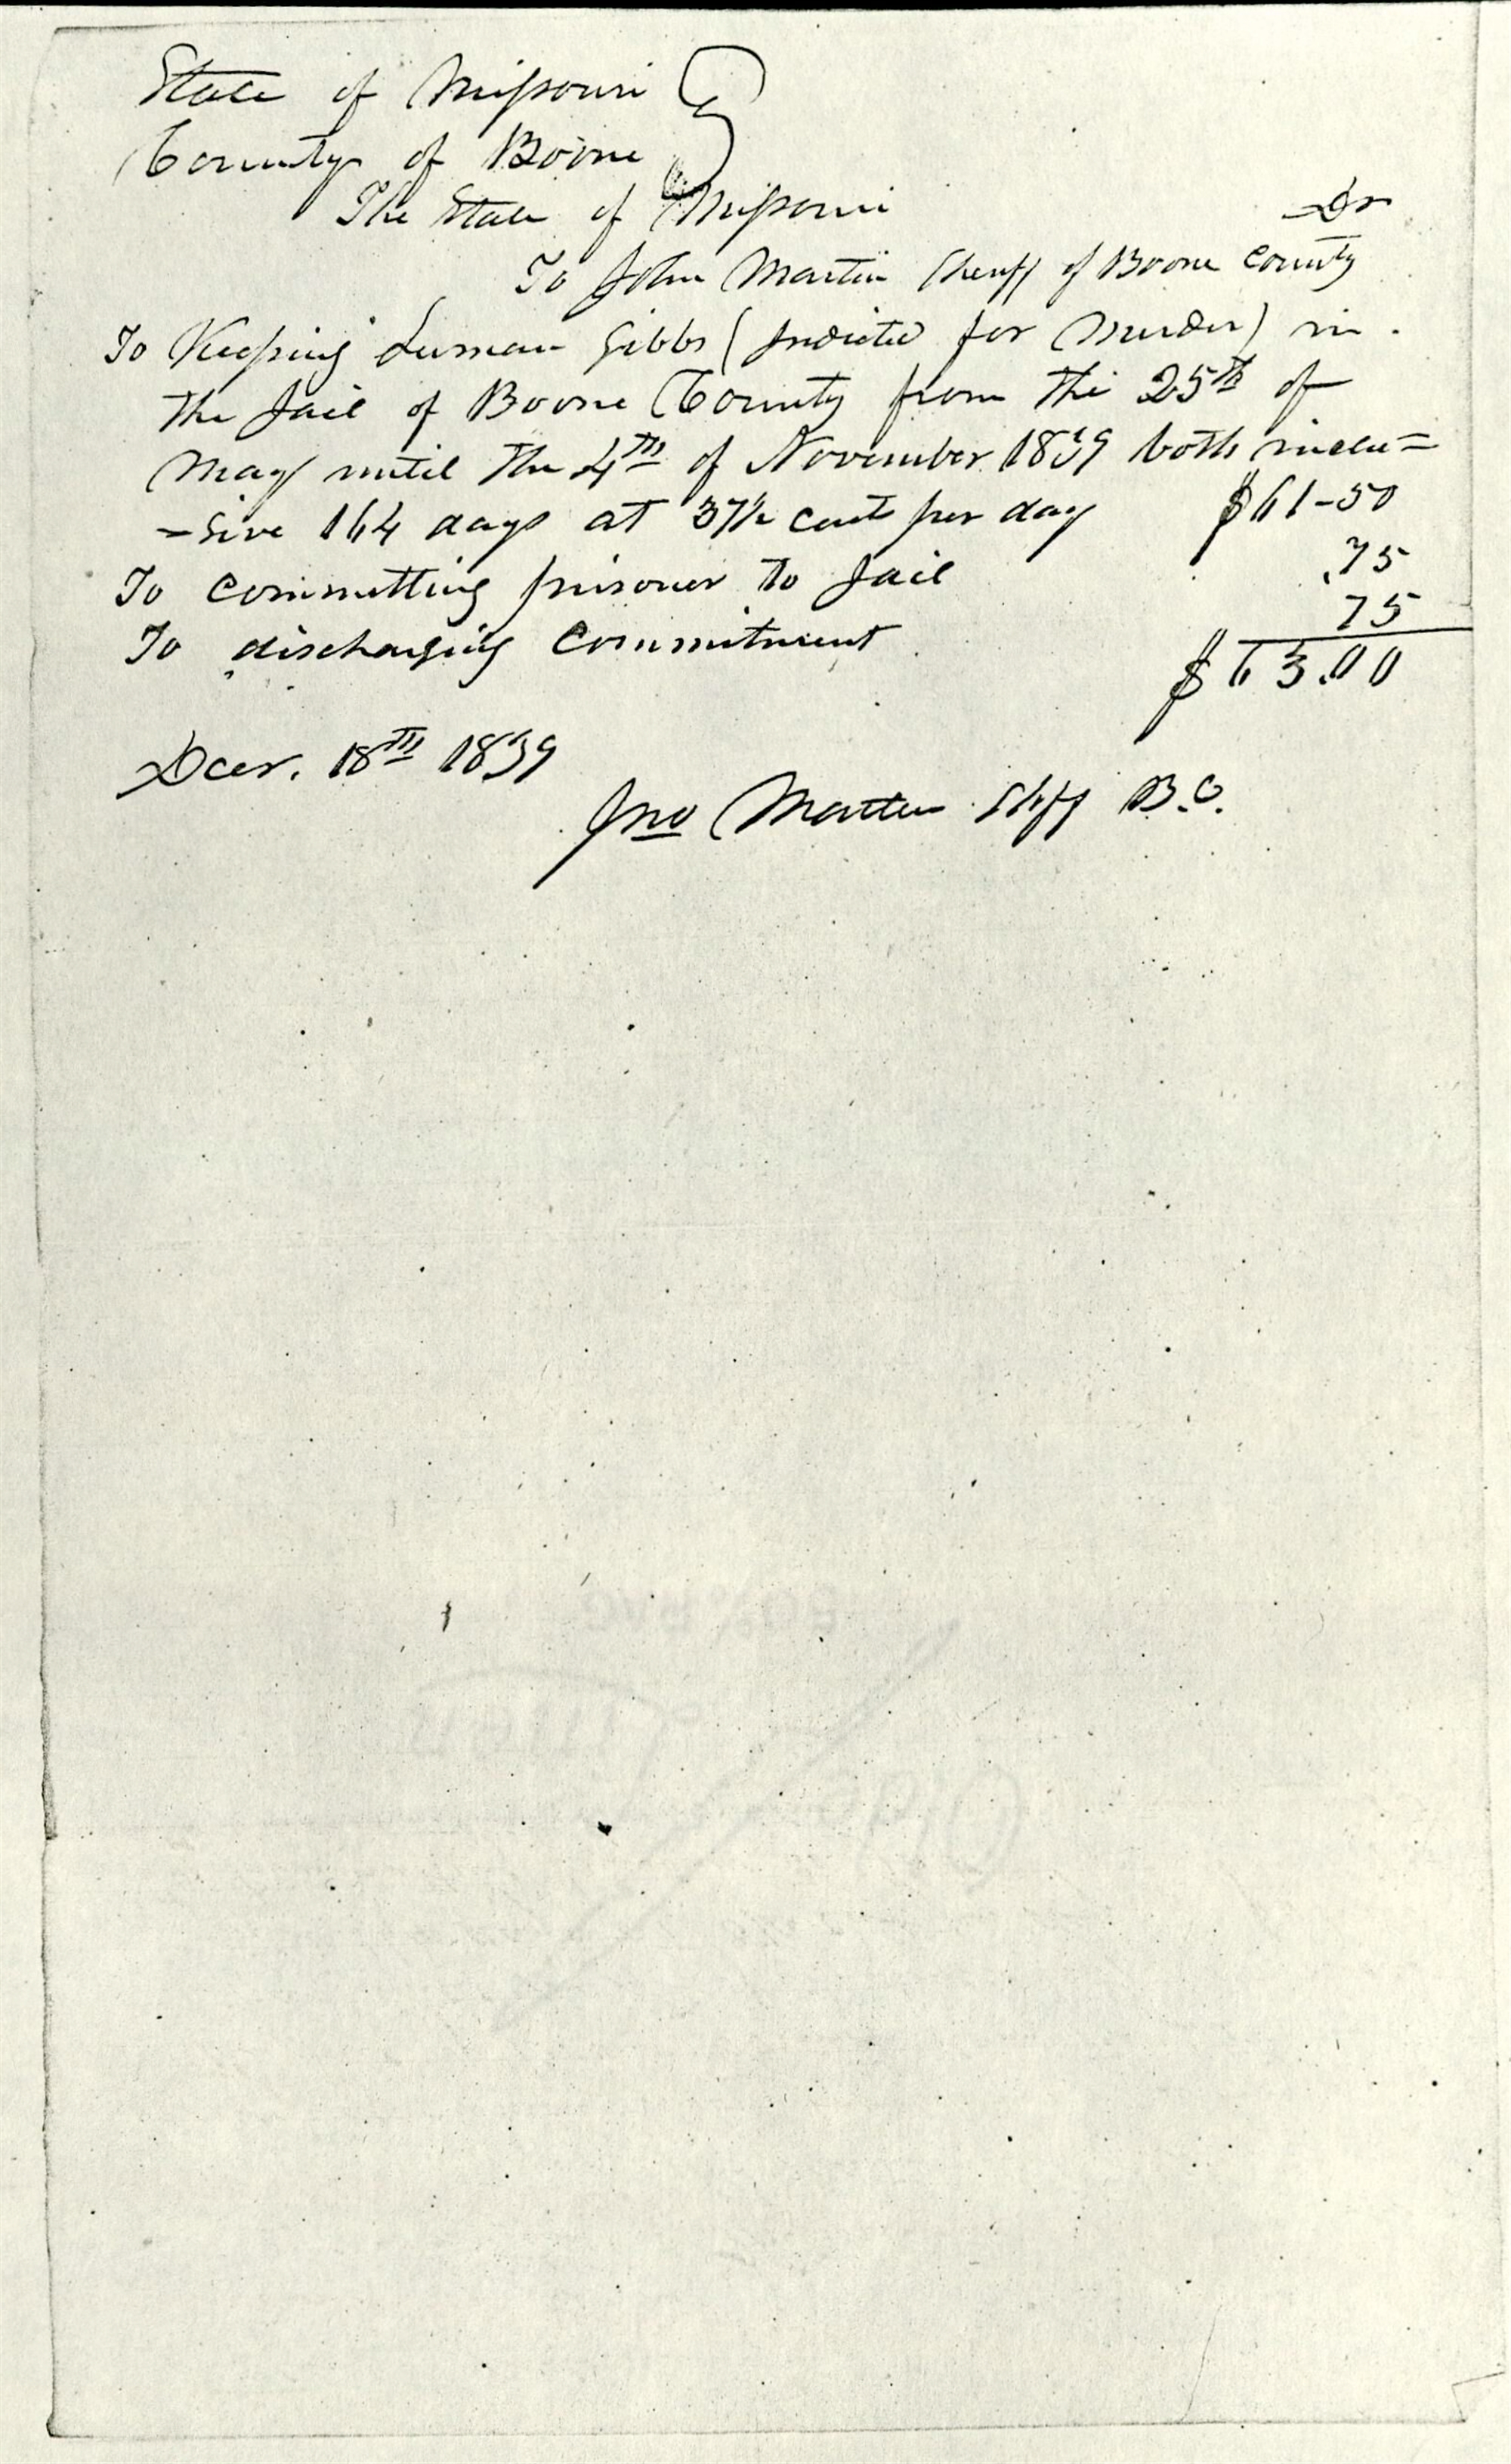 State of Missouri
County of Boone
The State of Missouri Dr
To John Martin Sheriff of Boone County
To Keeping Luman Gibbs (Indicted for Murder) in
the Jail of Boone County from the 25th of
May until the 4th of November 1839 both inclu=
=sive 164 days at 37½ cent per day $61-50
To committing prisoner to Jail .75
To discharging Commitment 75
$63.00
Decr. 18th 1839
Jno Martin Shff B.C.